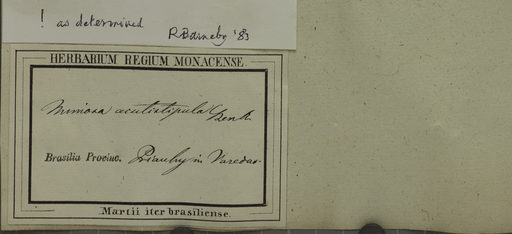 ! as determined
RBarneby '83
HERBARIUM REGIUM MONACENSE.
Mimosa acutistipula Benth.
Brasilia Provinc. Piauhy in Varedas.
Martii iter brasiliense.